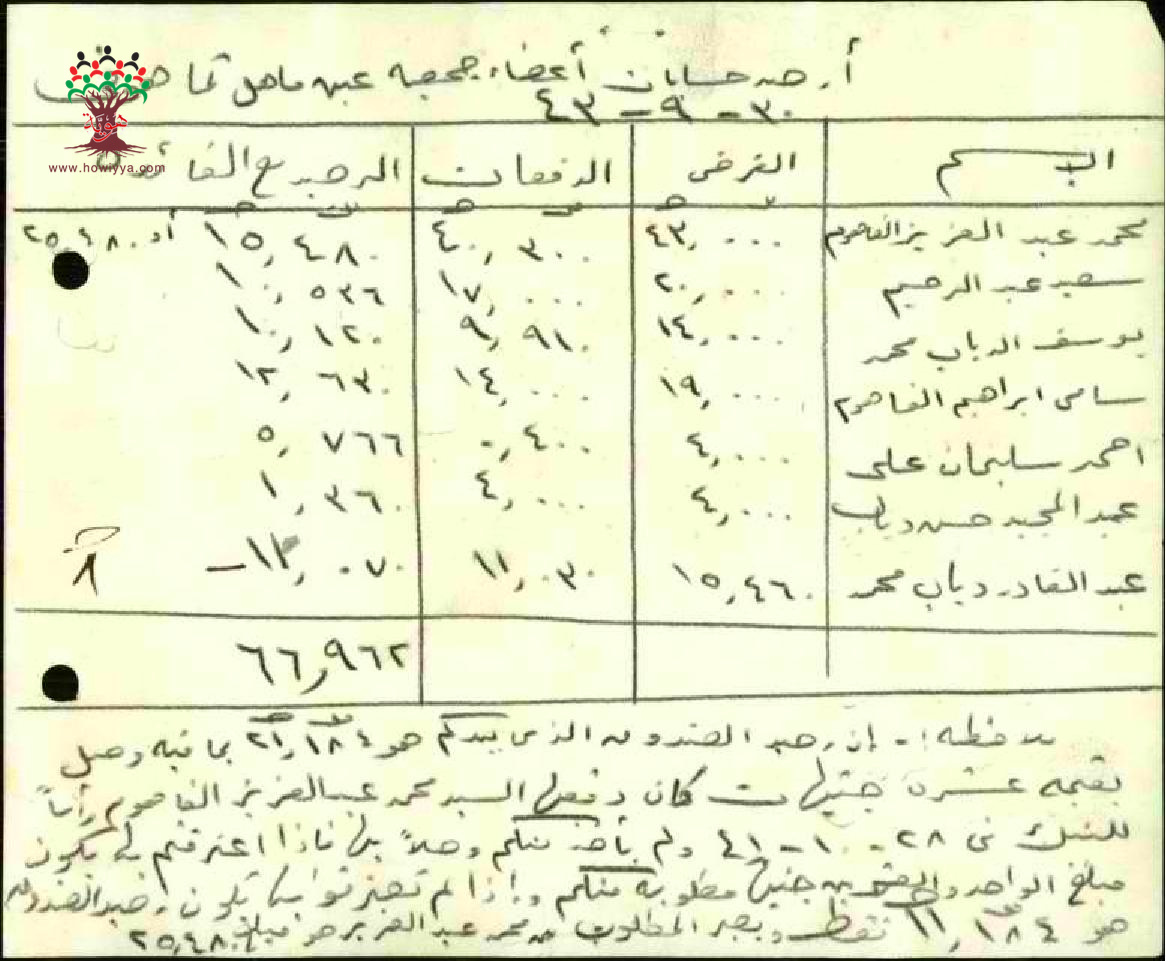 أرصدة حسابات أعضاء جمعية عين ماهل كما هي في
٣٠ - ٩ - ٤٣
هوية
www.howiyya.com
الاسم القرض الدفعات الرصيد مع الفائدة
محمد عبد العزيز الفاهوم ٤٣,٠٠٠ ٤٠,٣٠٠ ١٥,٤٨٠ أو ٢٥,٤٨٠
سعيد عبد الرحيم ٢٠,٠٠٠ ١٧,٠٠٠ ١٠,٥٣٦
يوسف الدياب محمد ١٤,٠٠٠ ٩,٩١٠ ١٠,١٢٠
سامي ابراهيم الفاهوم ١٩,٠٠٠ ١٤,٠٠٠ ١٢,٦٣٠
احمد سليمان علي ٤,٠٠٠ ٠,٤٠٠ ٥,٧٦٦
عبد المجيد حسن دياب ٤,٠٠٠ ٤,٠٠٠ ١,٣٦٠
عبد القادر دياب محمد ١٥,٤٦٠ ١١,٠٣٠ ١١,٠٧٠ -
٦٦,٩٦٢
ملاحظة :- إن رصيد الصندوق الذي بيدكم هو ٢١,١٨٤ بما فيه وصل
بقيمة عشرة جنيهات كان دفعها السيد محمد عبد العزيز الفاهوم رأساً
للبنك في ٢٨ - ١٠ - ٤١ ولم يأخذ منكم وصلاً بها فاذا اعترفتم بها يكون
مبلغ الواحد والعشرين جنيه مطلوبة منكم وإذا لم تعترفوا بها يكون رصيد الصندوق
هو ١١,١٨٤ فقط ويصير المطلوب من محمد عبد العزيز هو مبلغ ٢٥,٤٨٠